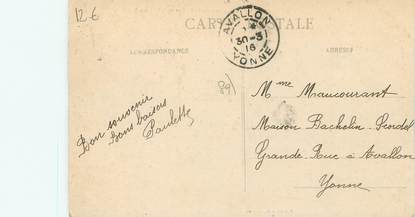 12 €
CARTE POSTALE
AVALLON
30-3
16
YONNE
CORRESPONDANCE
ADRESSE
89)
Bon souvenir
Bons baisers
Paulette
Mme Maucourant
Maison Bachelin
Grande Rue à Avallon
Yonne